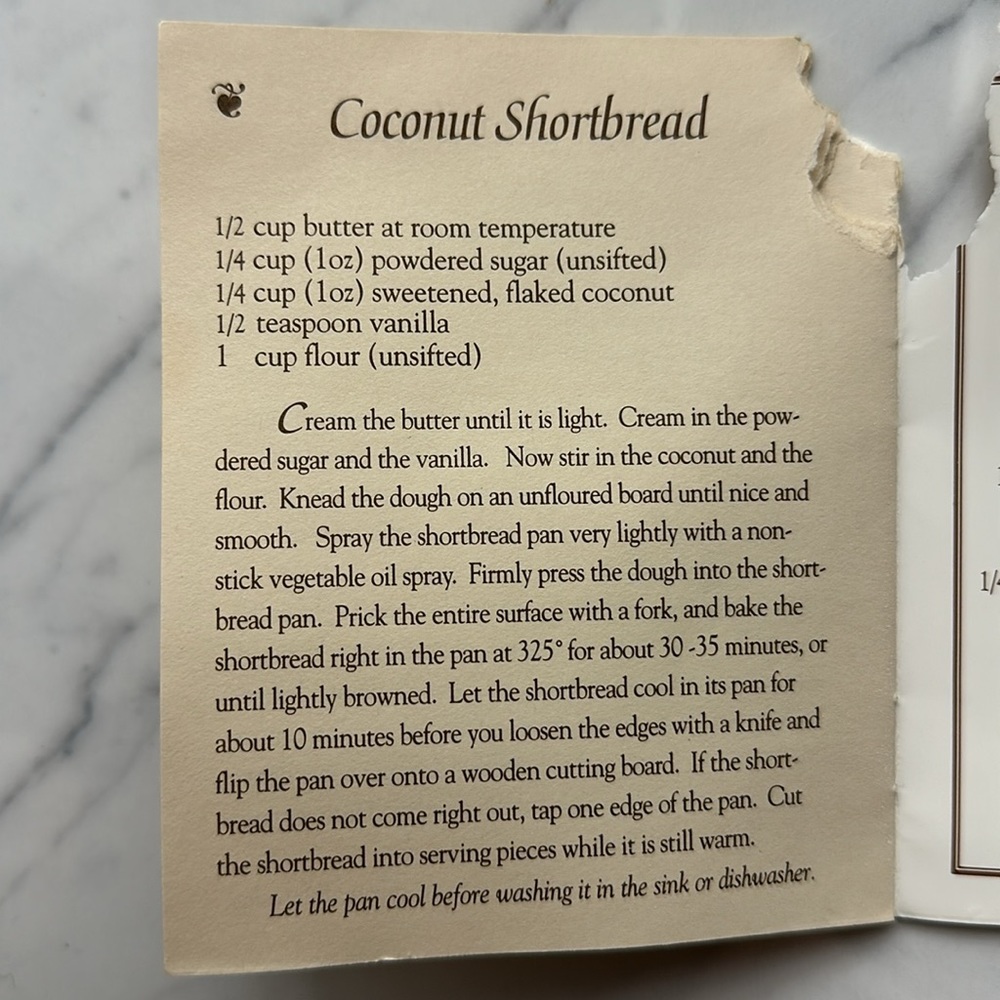 Coconut Shortbread
1/2 cup butter at room temperature
1/4 cup (1oz) powdered sugar (unsifted)
1/4 cup (1oz) sweetened, flaked coconut
1/2 teaspoon vanilla
1 cup flour (unsifted)
Cream the butter until it is light. Cream in the pow-
dered sugar and the vanilla. Now stir in the coconut and the
flour. Knead the dough on an unfloured board until nice and
smooth. Spray the shortbread pan very lightly with a non-
stick vegetable oil spray. Firmly press the dough into the short-
bread pan. Prick the entire surface with a fork, and bake the
shortbread right in the pan at 325° for about 30 -35 minutes, or
until lightly browned. Let the shortbread cool in its pan for
about 10 minutes before you loosen the edges with a knife and
flip the pan over onto a wooden cutting board. If the short-
bread does not come right out, tap one edge of the pan. Cut
the shortbread into serving pieces while it is still warm.
Let the pan cool before washing it in the sink or dishwasher.